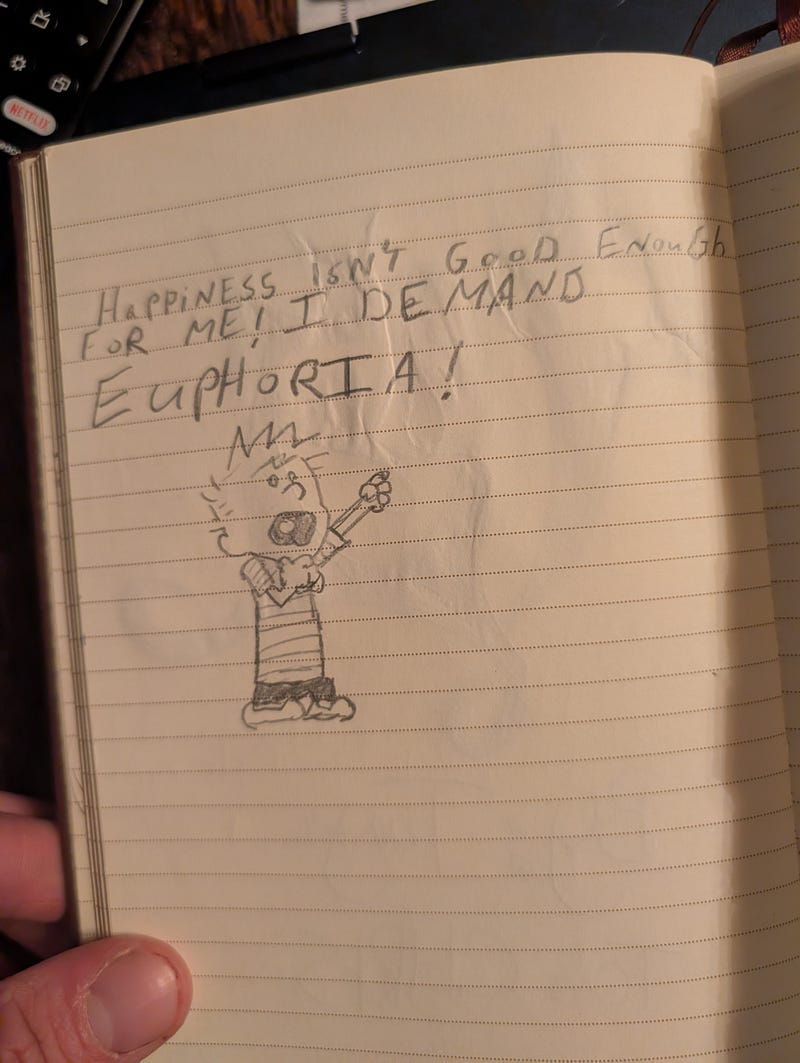 NETFLIX
HaPPiNESS iSN'T GooD ENouGh
FoR ME! I DEMAND
EuPHoRIA!